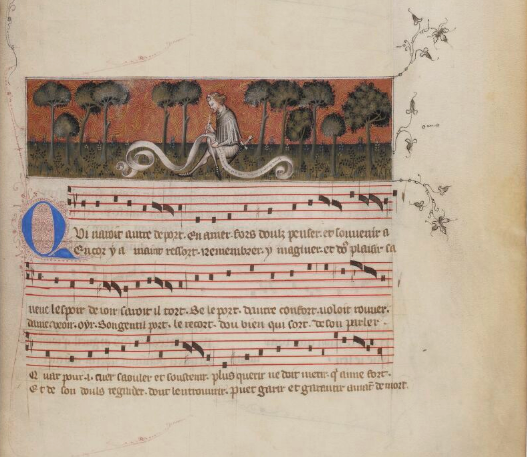 QVi naroit autre deport. En amer. fors doulz penser. et souuenir a
Encor y a maint ressort. Remembrer. y maginer. et doz plaisir sa
uenc lespoir de ioir auroit il tort. Se le port. dautre confort. uoloit rouuer.
veoir. oyr. Son gentil port. le recort. dou bien qui sort. de son parler.
Q uar pour .i. cuer saouler et soustenir. plus querir ne doit qi aime fort.
E t de son douls regarder. dont puet garir et garantir amant de mort.